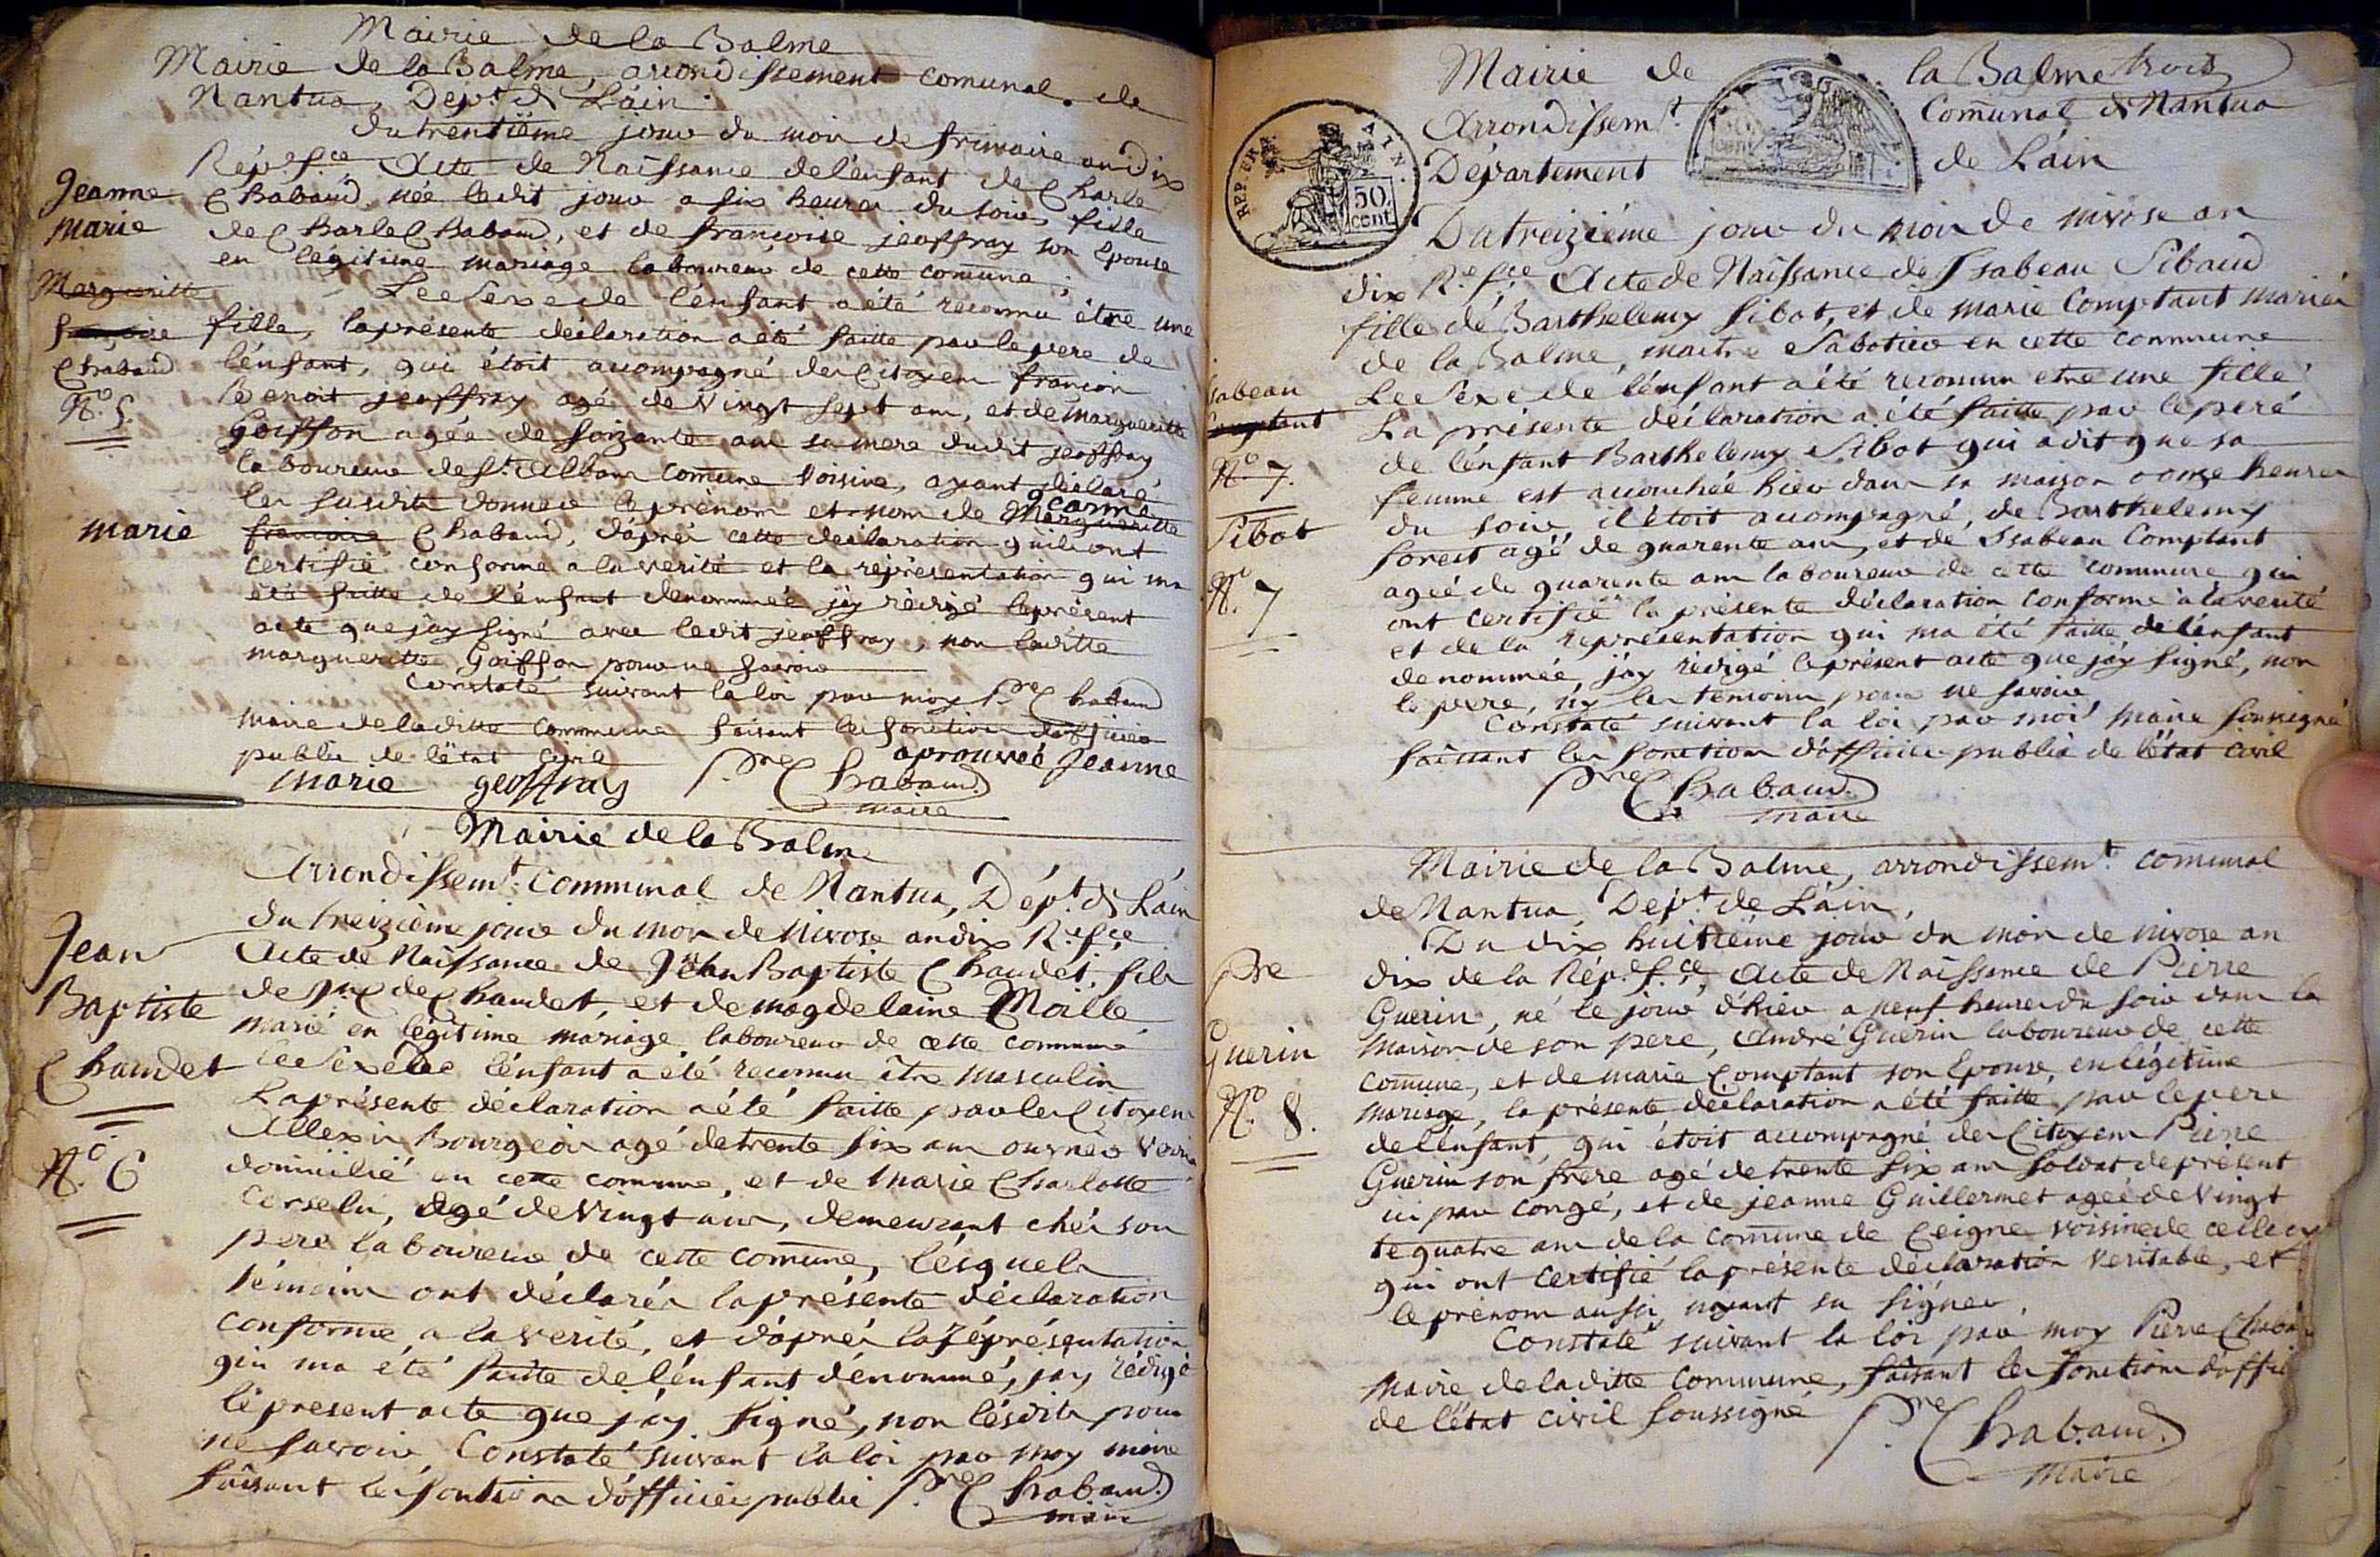 Mairie de la Balme
Mairie de la Balme, arondissement comunal de
Nantua, Dept. de L'ain.
du trentième jour du mois de frimaire an dix
Rép.e f.ce Acte de Naissance de l'énfant de Charle
Chabaud, née ledit jour a six heures du soir, fille
de Charle Chabaud, et de francoise jeoffray son Epouse
en légitime mariage laboureur de cette comune;
Le Sexe de l'énfant a été reconnu être une
fille, la présente déclaration a été faitte par le pere de
l'énfant, qui étoit acompagné des Citoyens francois
Benoit jeoffray agé de vingt sept ans, et de margueritte
Goiffon agée de soixante ans sa mere dudit jeoffray
laboureurs de St. Alban comune voisine, ayant déclaré
les susdits donner le prénom et nom de Marguerite
francoise Chabaud, d'áprés cette déclaration quils ont
certifié conforme a la verité et la représentation qui ma
été faitte de l'énfant denommée j'ay rédigé le présent
acte que j'ay signé avec ledit jeoffray, non laditte
margueritte Goiffon pour ne savoir
Constaté suivant la loi par moy P.re Chabaud
maire de laditte commune faisant les fonctions d'officier
public de l'état civil
aprouvé Jeanne
marie geoffray P.re Chabaud
maire
Jeanne
marie
Margueritte
francoise
Chabaud
N.o 5.
marie
Mairie de la Balme
Arrondissemt. communal de Nantua, Dépt. de L'ain
du treizième jour du mois de Nivose an dix R.e f.ce
Acte de Naissance de Jean Baptiste Chaudet, fils
de Chaudet, et de magdelaine Maille
marié en légitime mariage laboureur de cette commune
Le Sexe de l'énfant a été reconnu être masculin
La présente déclaration a été faitte par les Citoyens
Allexis Bourgeois agé de trente six ans
domicilié en cette comune, et de Marie Charlotte
agé de vingt ans, demeurant chés son
pere laboureur de cette comune, lésquels
témoins ont déclarés la présente déclaration
conforme a la verité, et d'áprés la représentation
qui ma été faitte de l'énfant dénommé, j'ay rédigé
le present acte que j'ay signé, non lésdits pour
ne savoir, Constaté suivant la loi par moy maire
faisant les fontions d'officier public P.re Chabaud
maire
Jean
Baptiste
Chaudet
N.o 6
Mairie de la Balme trois
Arrondissemt. Comunal de Nantua
Département de L'ain
REP. FRA.
50.
cent.
Du treizième jour du mois de nivose an
dix R.e f.ce Acte de Naissance de Isabeau Sibaud
fille de Barthelemy Sibot, et de marie Comptant mariés
de la Balme, maitre Sabotier en cette commune
Le Sexe de l'énfant a été reconnu etre une fille
La présente déclaration a été faitte par le peré
de l'énfant Barthelemy Sibot qui a dit que sa
femme est acouchée hier dans sa maison a onze heures
du soir, il étoit acompagné, de Barthelemy
forest agé de quarente ans, et de Isabeau Comptant
ageé de quarente ans laboureurs de cette commune qui
ont certifié la présente déclaration conforme a la verité
et de la représentation qui ma été faitte de l'énfant
denommée, j'ay rédigé le présent acte que j'ay signé, non
le pere, ny les temoins pour ne savoir
Constaté suivant la loi par moi maire soussigné
faissant les fonctions d'officier public de l'état civil
P.re Chabaud
maire
Isabeau
Comptant
N.o 7.
Sibot
N.o 7
Mairie de la Balme, arrondissemt. comunal
de Nantua, Dépt. de L'ain,
Du dix huitième jour du mois de nivose an
dix de la Rép.e f.ce, Acte de Naissance de Pierre
Guerin, né le jour d'hier a neuf heures du soir dans la
maison de son pere, André Guérin laboureur de cette
comune, et de marie Comptant son Epouse, en légitime
mariage, la présente déclaration a été faitte par le pere
de l'énfant, qui étoit accompagné des Citoyens Pierre
Guerin son frere agé de trente six ans soldat de présent
ici par congé, et de jeanne Guillermet ageé de vingt
te quatre ans de la comune de Ceigne voisine de celle cy
qui ont certifié la présente déclaration veritable, et
le prénom aussi, nayant su signer.
Constaté suivant la loi par moy Pierre Chabau
Maire de laditte commune, faisant les fonctions d'offici
de l'état civil soussigné P.re Chabaud
Maire
Pre
Guerin
N.o 8.